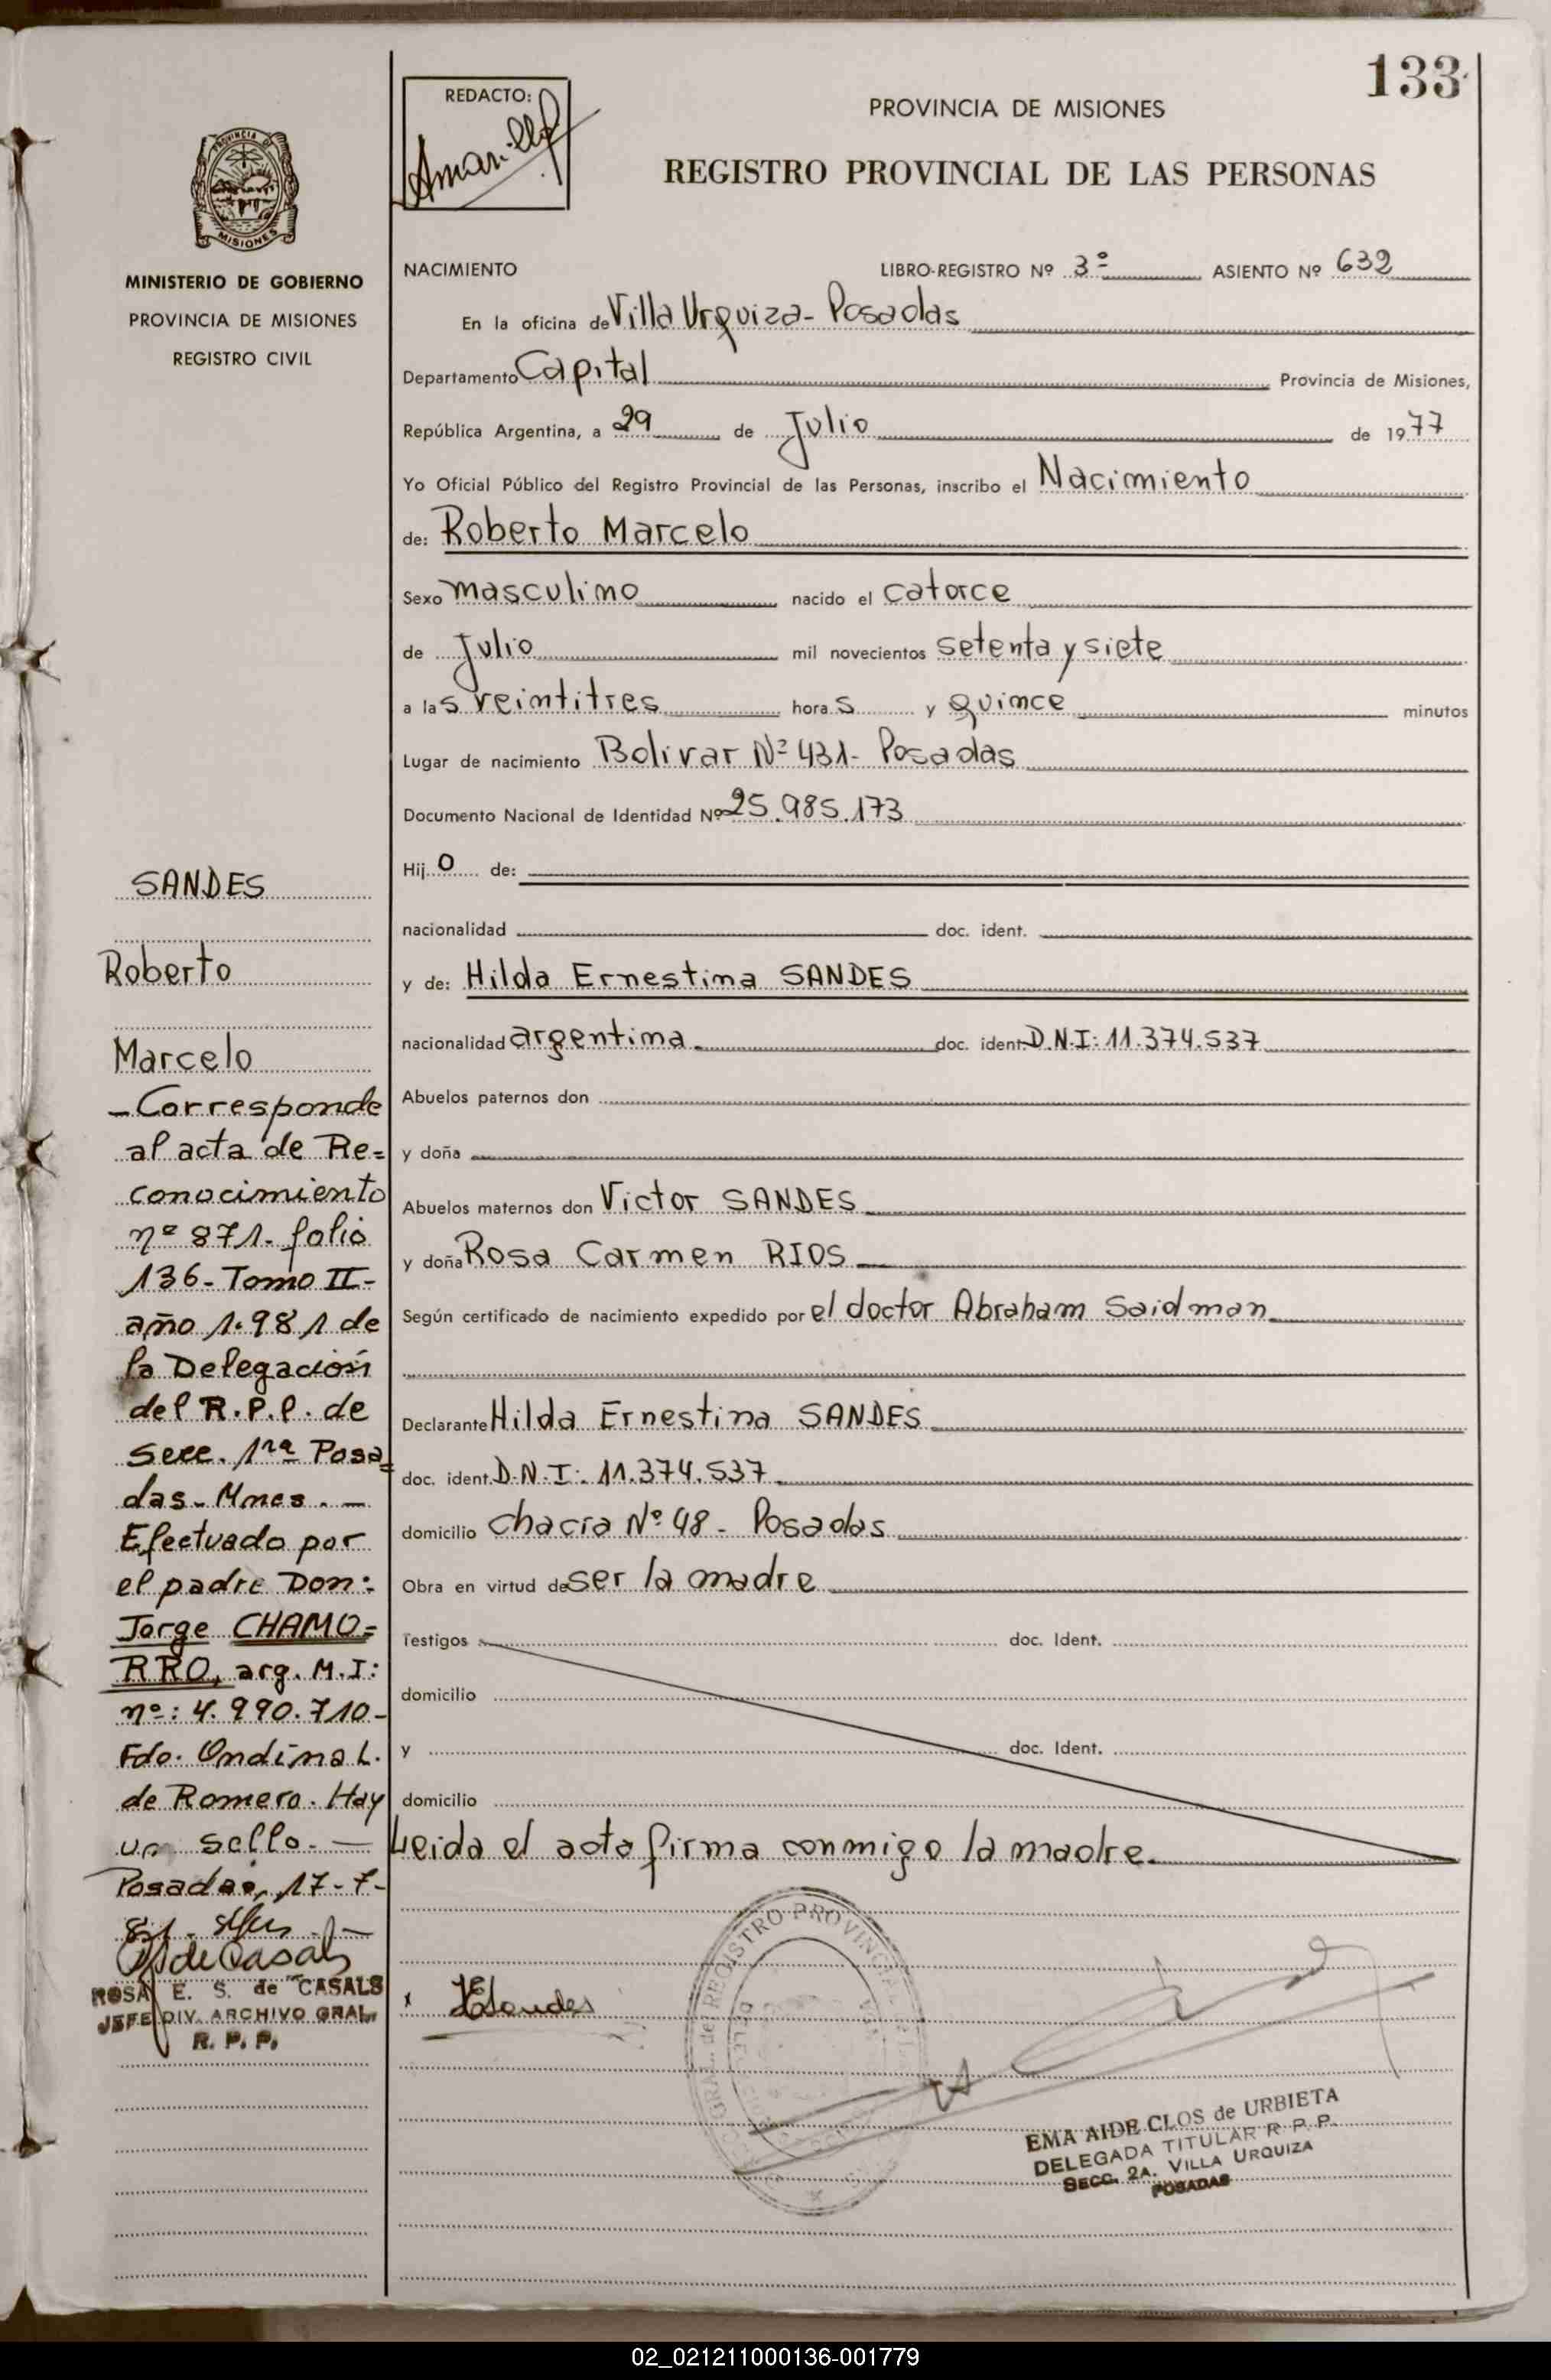 133
REDACTO:
Amarilla
PROVINCIA DE MISIONES
REGISTRO PROVINCIAL DE LAS PERSONAS
PROVINCIA DE
MISIONES
MINISTERIO DE GOBIERNO
PROVINCIA DE MISIONES
REGISTRO CIVIL
NACIMIENTO LIBRO-REGISTRO Nº 3º ASIENTO Nº 632
En la oficina de Villa Urquiza - Posadas
Departamento Capital Provincia de Misiones,
República Argentina, a 29 de Julio de 1977
Yo Oficial Público del Registro Provincial de las Personas, inscribo el Nacimiento
de: Roberto Marcelo
Sexo masculino nacido el catorce
de Julio mil novecientos setenta y siete
a las veintitres horas y quince minutos
Lugar de nacimiento Bolivar Nº 431- Posadas
Documento Nacional de Identidad Nº 25.985.173
Hijo de:
nacionalidad doc. ident.
y de: Hilda Ernestina SANDES
nacionalidad argentina doc. ident. D.N.I: 11.374.537
Abuelos paternos don
y doña
Abuelos maternos don Victor SANDES
y doña Rosa Carmen RIOS
Según certificado de nacimiento expedido por el doctor Abraham Saidman
Declarante Hilda Ernestina SANDES
doc. ident. D.N.I: 11.374.537
domicilio chacra Nº 48 - Posadas
Obra en virtud de ser la madre
Testigos doc. Ident.
domicilio
y doc. Ident.
domicilio
Leida el acta firma conmigo la madre.
SANDES
Roberto
Marcelo
- Corresponde
al acta de Re=
conocimiento
nº 871- folio
136- Tomo II-
año 1.981 de
la Delegación
del R.P.P. de
Secc. 1ra Posa=
das- Mnes. -
Efectuado por
el padre Don:
Jorge CHAMO=
RRO, arg. M.I:
nº: 4.990.710-
Fdo. Ondina L.
de Romero. Hay
un sello. -
Posadas, 17-7-
81.-
de Casals
ROSA E. S. de CASALS
JEFE DIV. ARCHIVO GRAL.
R. P. P.
x HSandes
GRAL. del REGISTRO PROVINCIAL
EMA AIDE CLOS de URBIETA
DELEGADA TITULAR R. P. P.
SECC. 2A. VILLA URQUIZA
POSADAS
02_021211000136-001779